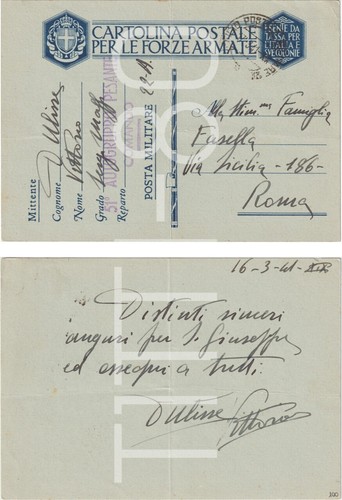 CARTOLINA POSTALE
PER LE FORZE ARMATE
ESENTE DA
TASSA PER
L'ITALIA E
SVE COLONIE
Mittente
Cognome D'Ulisse
Nome Vittorio
Grado Serg. Magg.
Reparto
POSTA MILITARE 22-A.
Famiglia
Fasella
Via Sicilia -186-
Roma
16-3-41-
Distinti sinceri
auguri per S. Giuseppe
ed ossequi a tutti.
D'Ulisse Vittorio
100